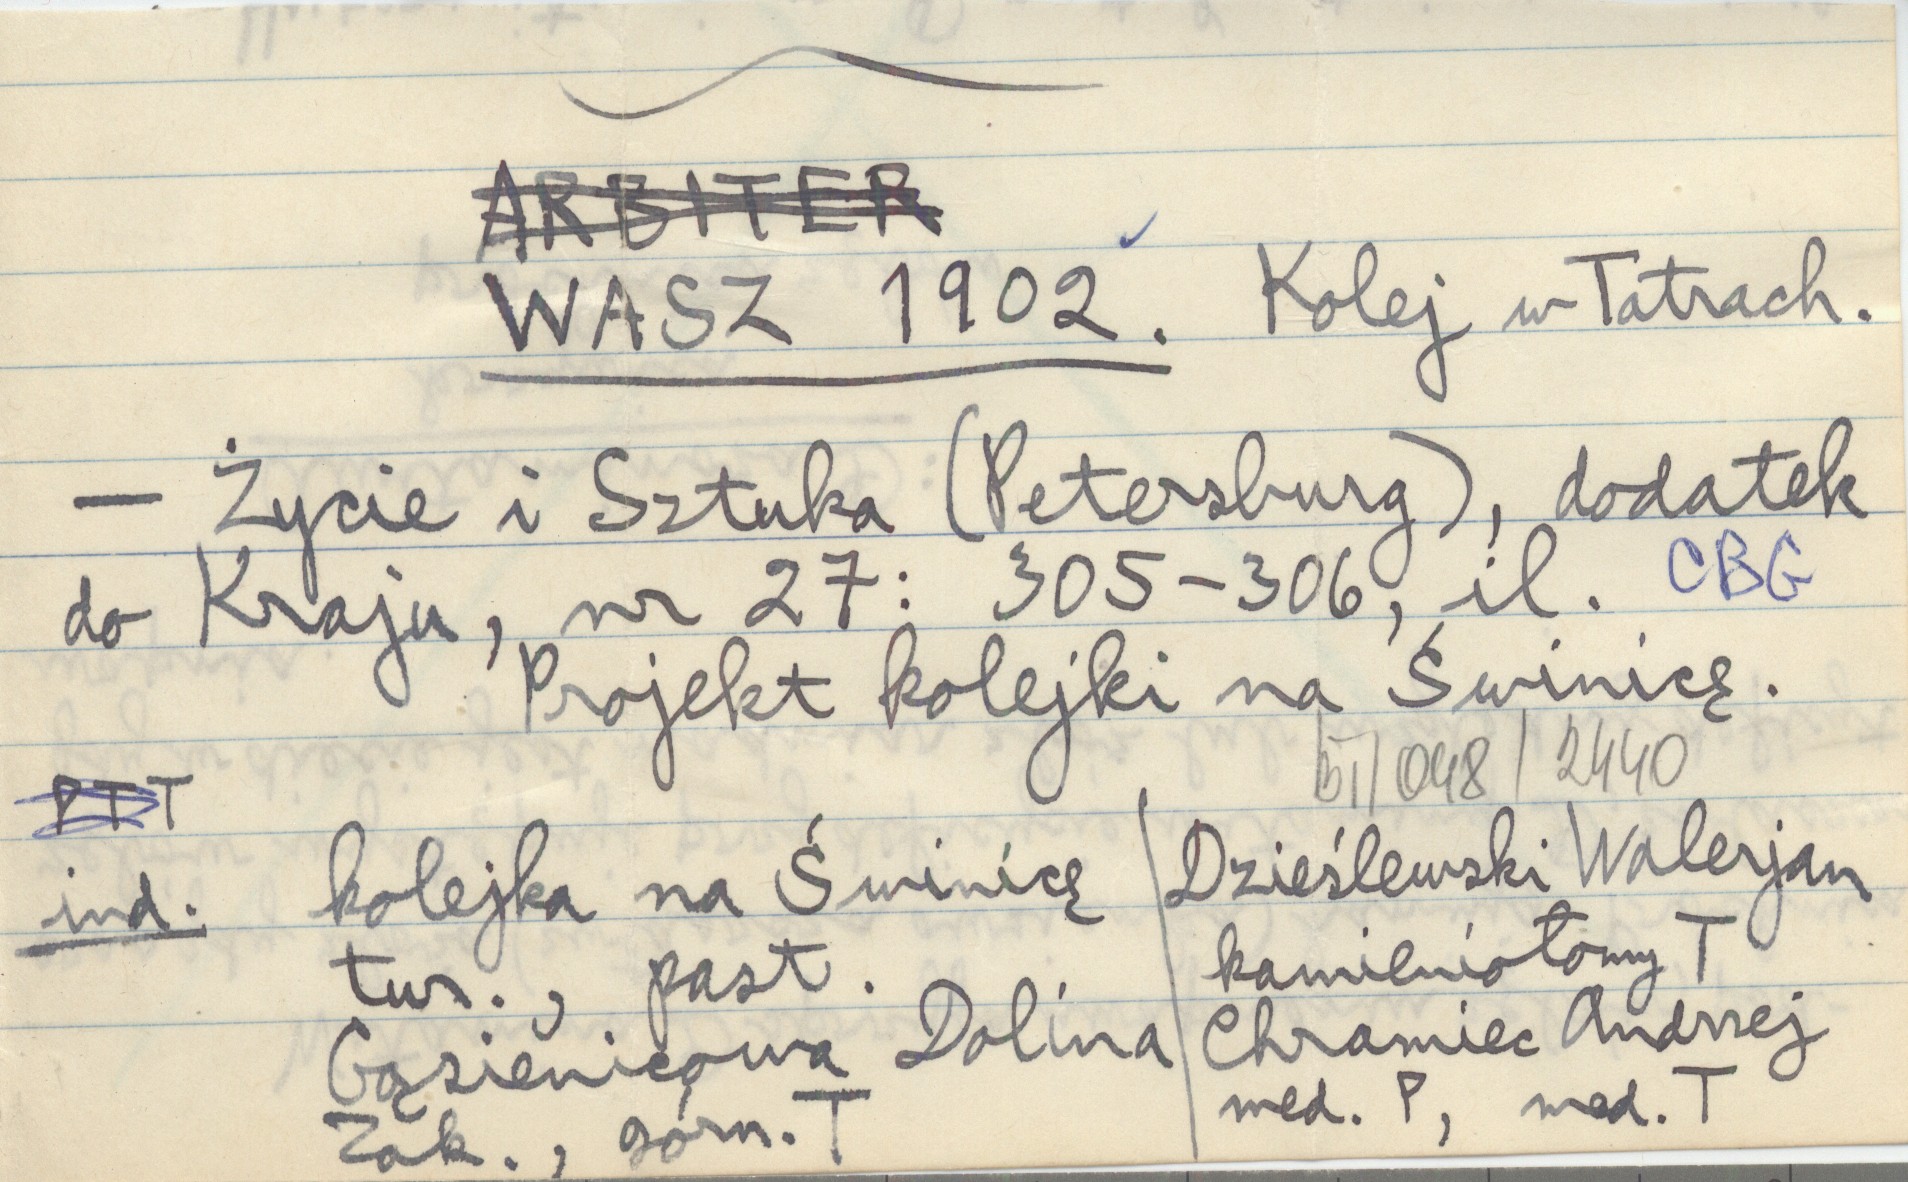 ARBITER
WASZ 1902. Kolej w Tatrach.
— Życie i Sztuka (Petersburg), dodatek
do Kraju, nr 27: 305-306, il. CBG
Projekt kolejki na Świnicę.
/048/2440
PTT T
ind. kolejka na Świnicę
tur., past.
Gąsienicowa Dolina
Zak., górn. T
Dzieślewski Walerjan
kamieniołomy T
Chramiec Andrzej
med. P, med. T